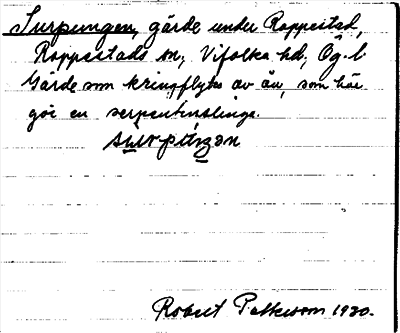 Surpungen, gärde under Roppestad,
Rappestads sn, Vifolka hd, Ög. l.
Gärde som kringflytes av ån, som här
gör en serpentinslinga.
Robert Petterson 1930.